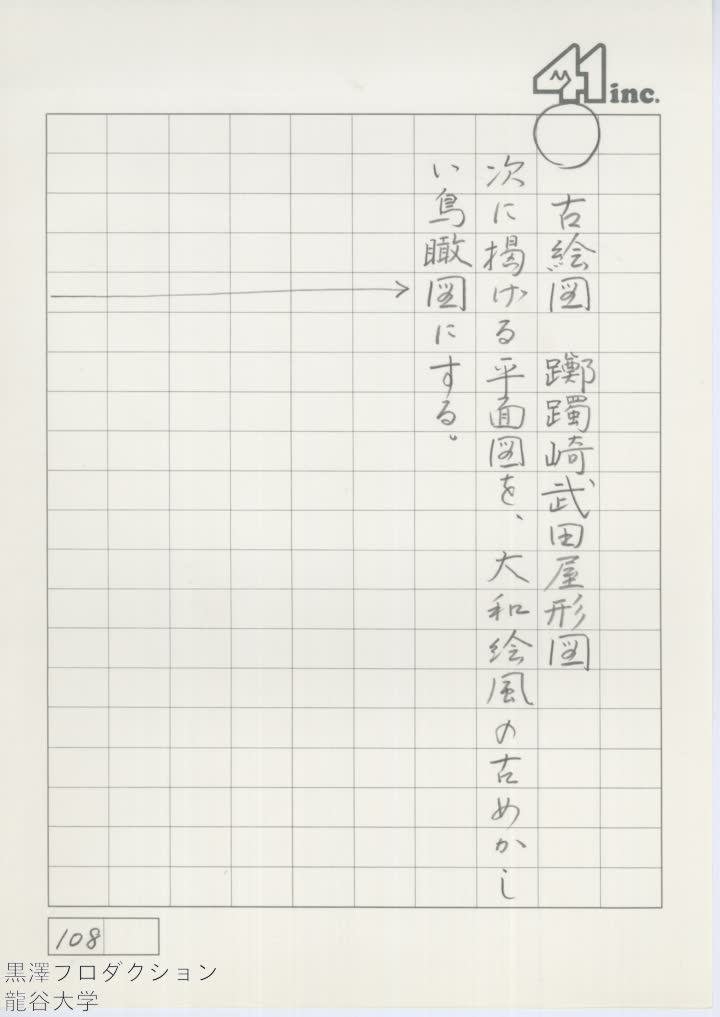 41 inc.
古絵図　躑躅崎武田屋形図
次に掲げる平面図を、大和絵風の古めかし
い鳥瞰図にする。
108
黒澤プロダクション
龍谷大学